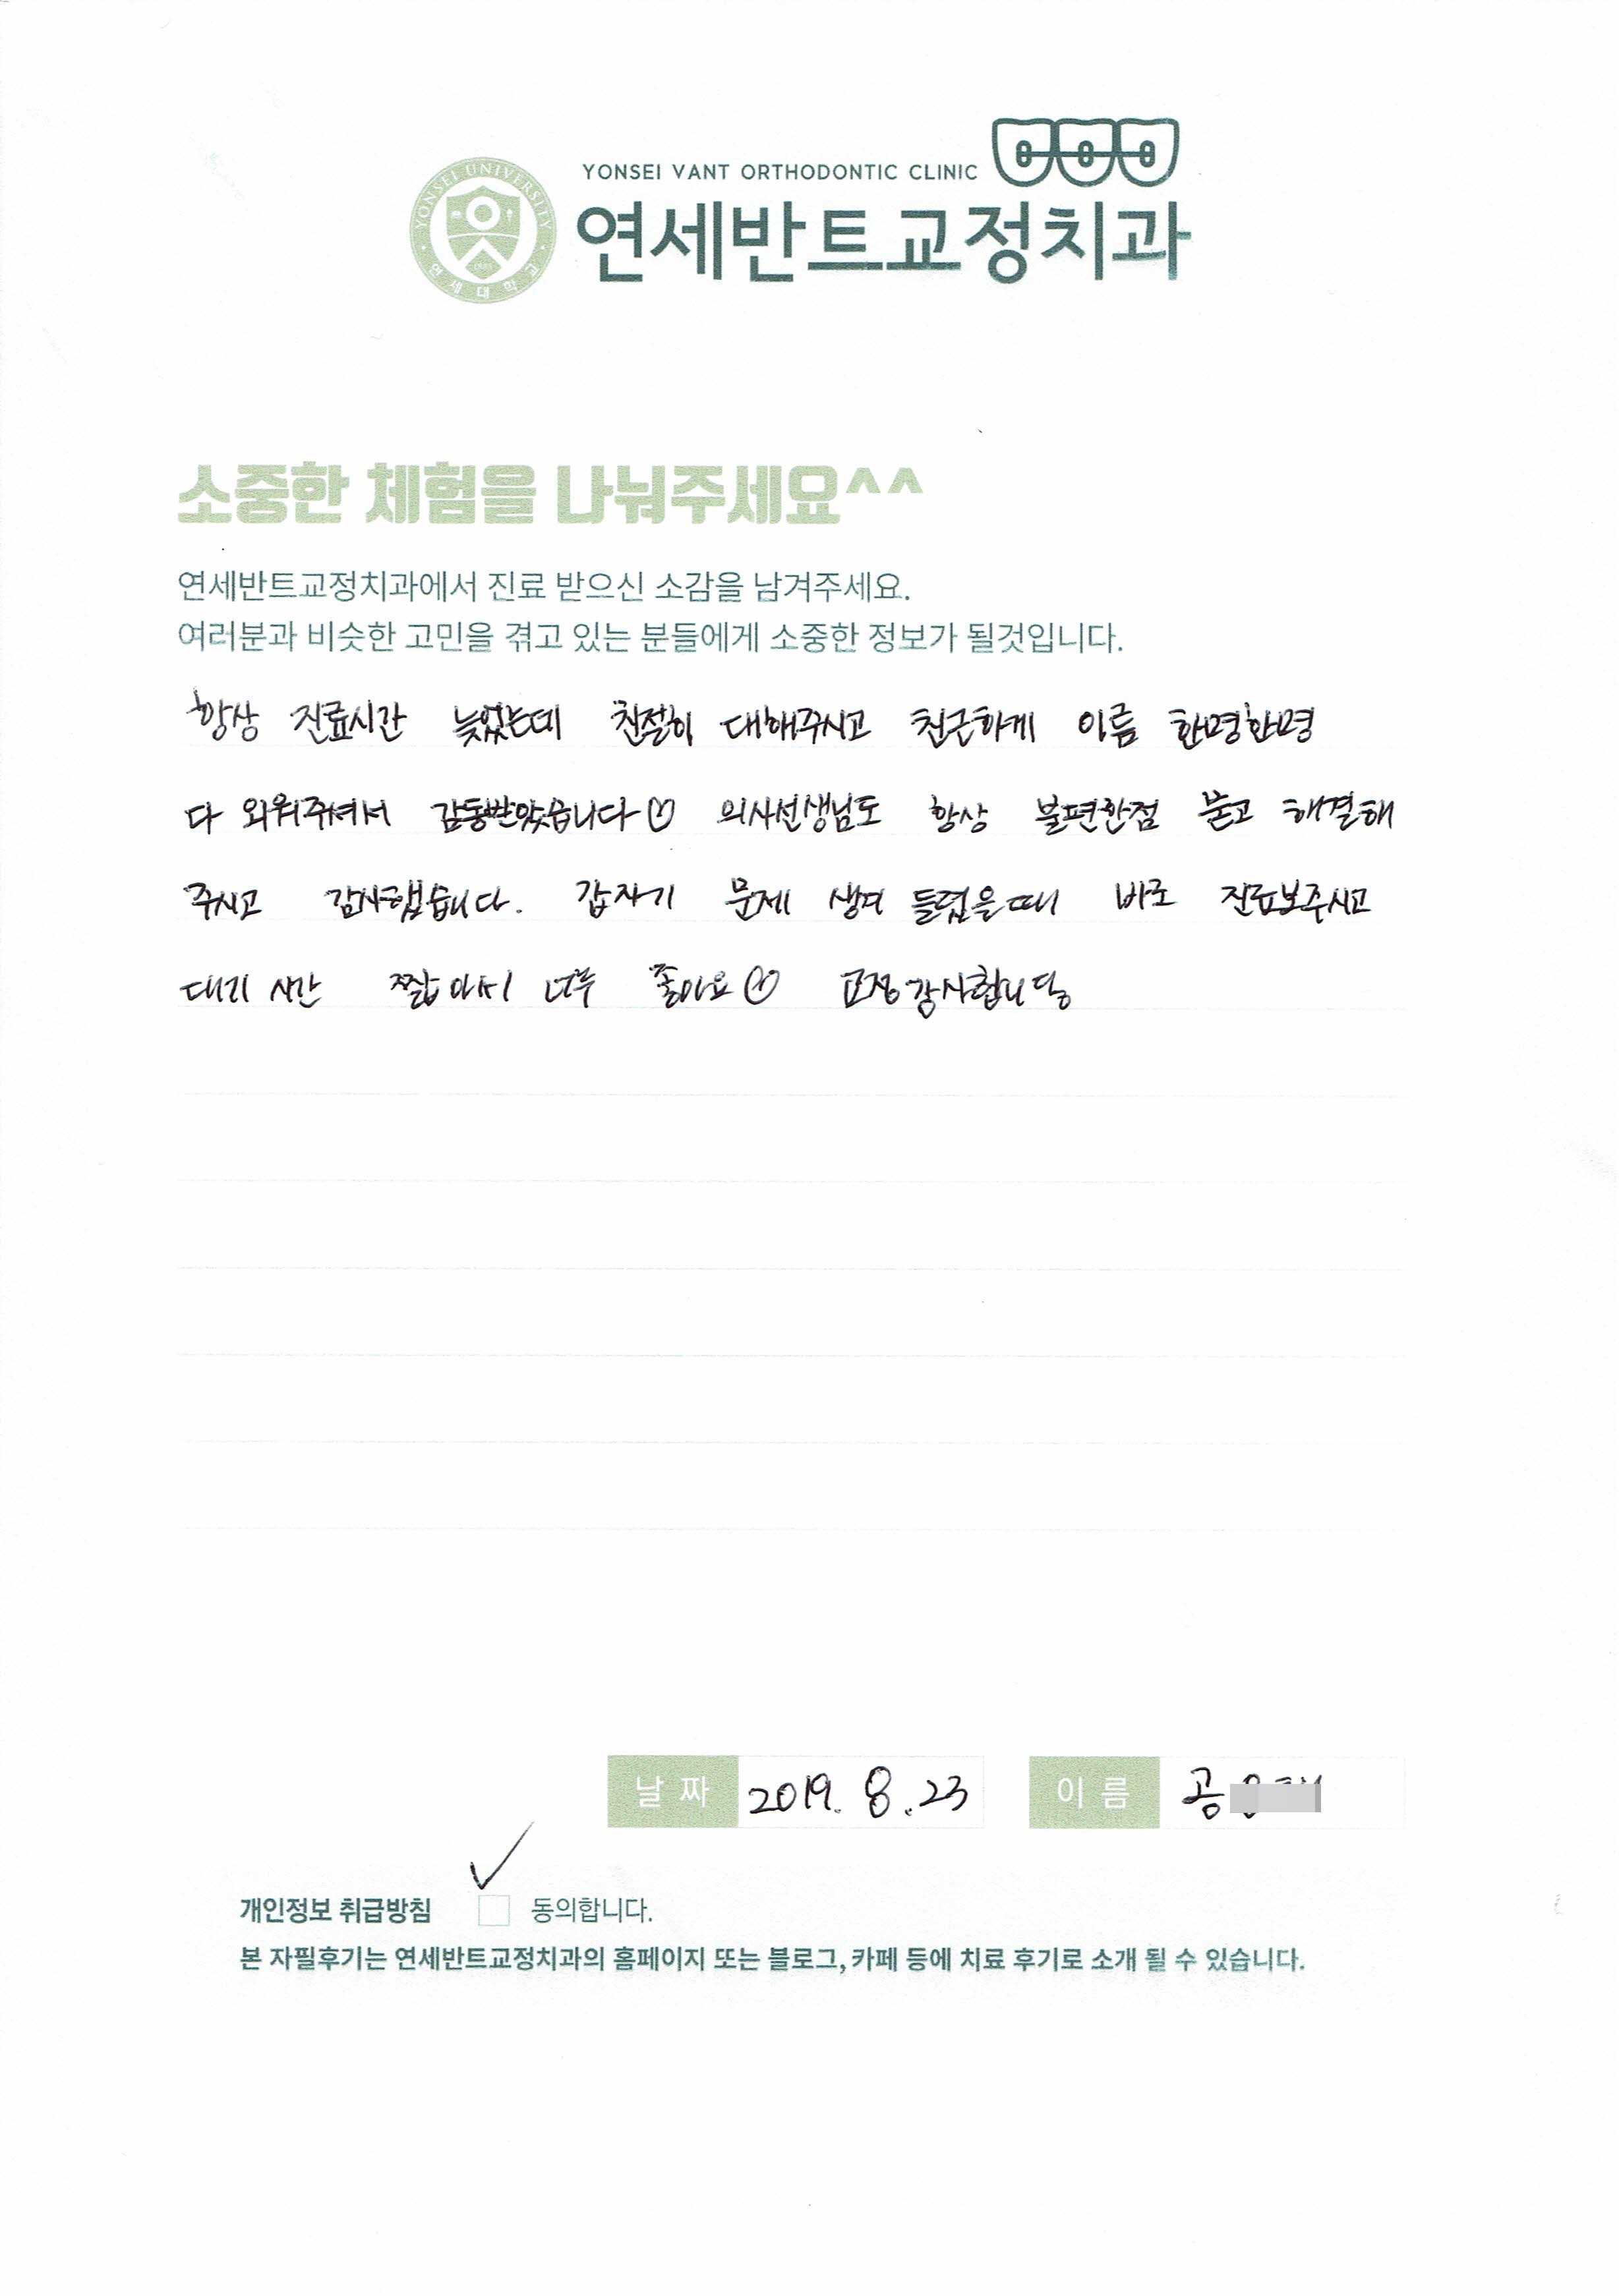 YONSEI UNIVERSITY
연세대학교
YONSEI VANT ORTHODONTIC CLINIC
연세반트교정치과
소중한 체험을 나눠주세요^^
연세반트교정치과에서 진료 받으신 소감을 남겨주세요.
여러분과 비슷한 고민을 겪고 있는 분들에게 소중한 정보가 될것입니다.
항상 진료시간 늦었는데 친절히 대해주시고 친근하게 이름 한명한명
다 외워주셔서 감동받았습니다♡ 의사선생님도 항상 불편한점 묻고 해결해
주시고 감사했습니다. 갑자기 문제 생겨 들렸을때 바로 진료보주시고
대기 시간 짧아서 너무 좋아요 교정감사합니당
날짜 2019. 8. 23 이름 공
개인정보 취급방침 동의합니다.
본 자필후기는 연세반트교정치과의 홈페이지 또는 블로그, 카페 등에 치료 후기로 소개 될 수 있습니다.